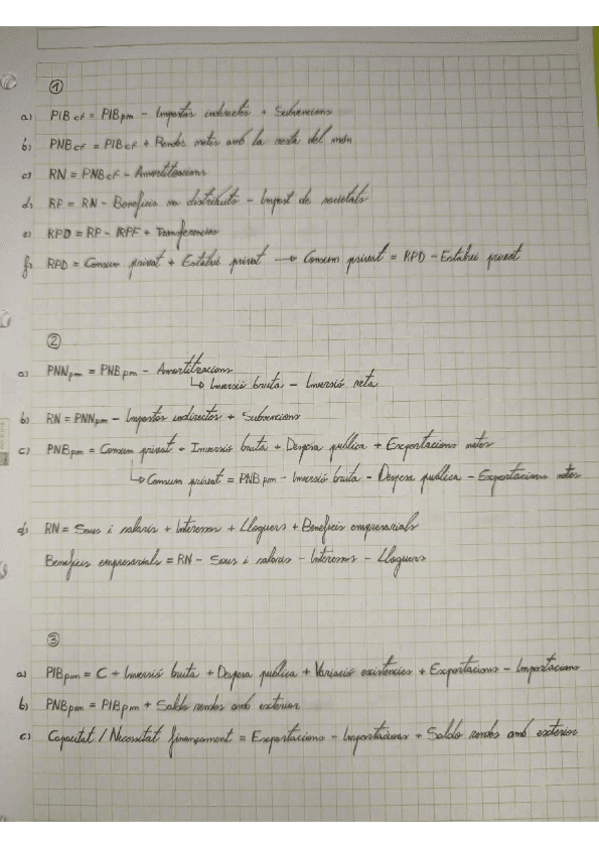 ①
a) PIBcf = PIBpm - Impostos indirectos + Subvencions
b) PNBcf = PIBcf + Rendes netes amb la resta del món
c) RN = PNBcf - Amortitzacions
d) RP = RN - Beneficis no distribuits - Impost de societats
e) RPD = RP - IRPF + Transferencies
f) RPD = Consum privat + Estalvi privat → Consum privat = RPD - Estalvi privat
②
a) PNNpm = PNBpm - Amortitzacions
↳ Inversió bruta - Inversió neta
b) RN = PNNpm - Impostos indirectos + Subvencions
c) PNBpm = Consum privat + Inversió bruta + Despesa publica + Exportacions netes
↳ Consum privat = PNBpm - Inversió bruta - Despesa publica - Exportacions netes
d) RN = Sous i salaris + Interessos + Lloguers + Beneficis empresarials
Beneficis empresarials = RN - Sous i salaris - Interessos - Lloguers
③
a) PIBpm = C + Inversió bruta + Despesa publica + Variació existències + Exportacions - Importacions
b) PNBpm = PIBpm + Saldo rendes amb exterior
c) Capacitat / Necessitat finançament = Exportacions - Importacions + Saldo rendes amb exterior